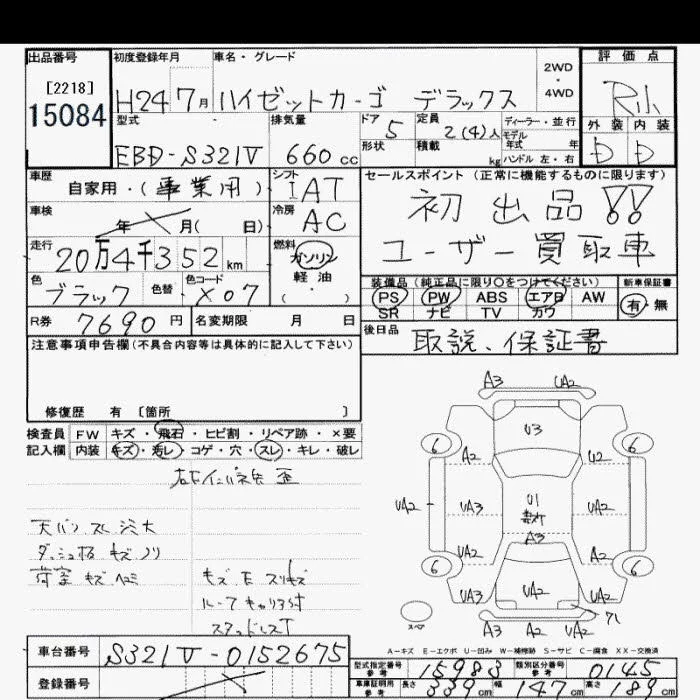 出品番号 初度登録年月 車名・グレード 2WD・4WD 評価点
[2218]
15084
H24 7月 ハイゼットカーゴ デラックス
型式 排気量 ドア 5 定員 2(4)人 ディーラー・並行
モデル年式 年
形状 積載 kg ハンドル 左・右
外装 内装
D D
EBD-S321V 660cc
車歴 自家用・(事業用) シフト IAT セールスポイント(正常に機能するものに限ります)
車検 年 月( 日) 冷房 AC 初出品!!
走行 20万4千352km 燃料 ガソリン 軽油 ( ) ユーザー買取車
色 ブラック 色替 色コード X07
装備品(純正品に限り○をつけてください) 新車保証書
PS PW ABS エアB AW 有・無
SR ナビ TV カワ
R券 7690円 名変期限 月 日 後日品 取説、保証書
注意事項申告欄(不具合内容等は具体的に記入して下さい)
修復歴 有 [箇所 ]
検査員 FW キズ・飛石・ヒビ割・リペア跡・×要
記入欄 内装 キズ・汚レ・コゲ・穴・スレ・キレ・破レ
天バン スレ 汚大
ダッシュ板 キズ ノリ
荷室 キズ ヘコミ
ルーフキャリア付
スタッドレスT
A3 UA2
U3
6 6
A2 U2
UA2 UA3 U1 UA2
A3
UA2 UA2
6 6
UA3 UA2 A2
スペア
A3 A2 UA2
A-キズ E-エクボ U-凹み W-補修跡 S-サビ C-腐食 XX-交換済
車台番号 S321V-0152675
型式指定番号 参考 15983 類別区分番号 参考 0145
登録番号
車庫証明用 参考 長さ 339cm 幅 147cm 高さ 189cm